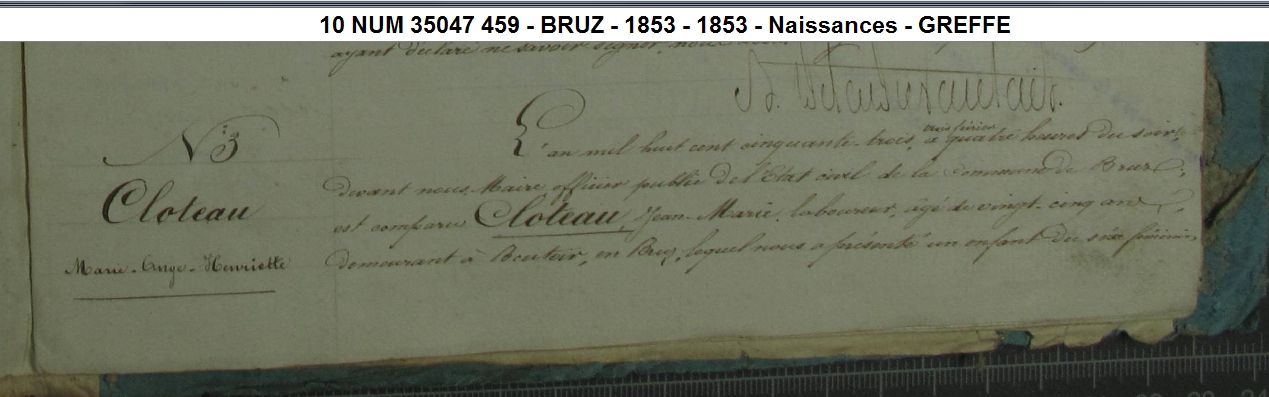 10 NUM 35047 459 - BRUZ - 1853 - 1853 - Naissances - GREFFE
ayant déclaré ne savoir signer,
N 3
Cloteau
Marie-Ange-Henriette
L'an mil huit cent cinquante-trois, trois février à quatre heures du soir,
devant nous Maire officier public de l'Etat civil de la Commune de Bruz,
est comparu Cloteau, Jean-Marie, laboureur, âgé de vingt-cinq ans,
demeurant à en Bruz, lequel nous a présenté un enfant du sexe féminin